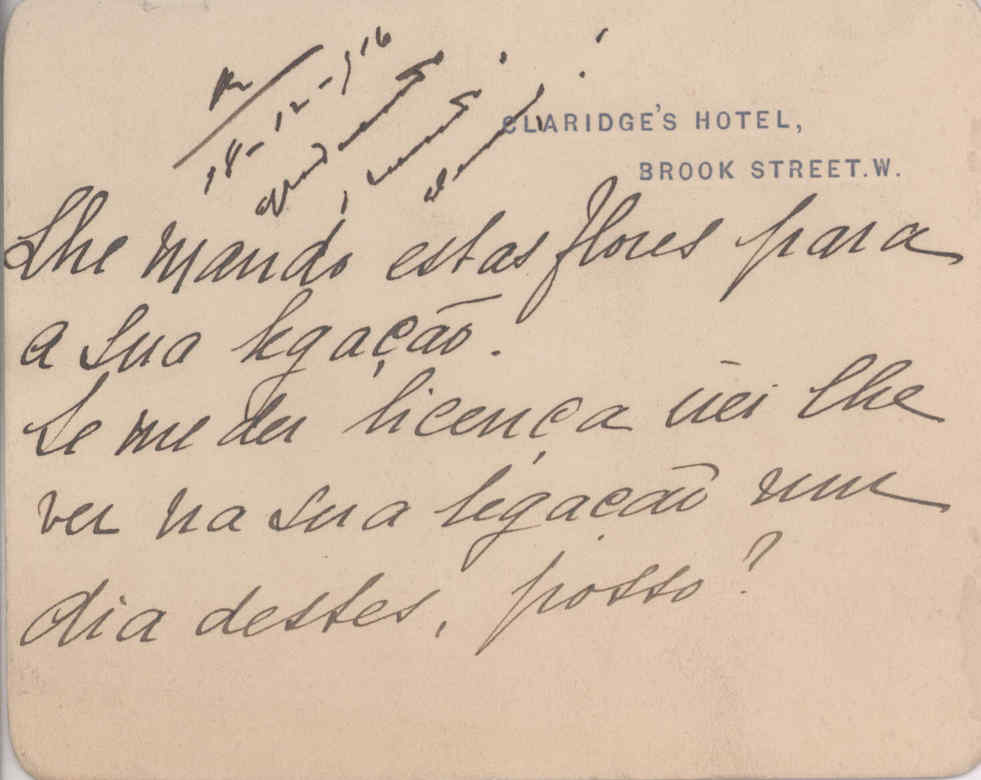 R
18-12-916
CLARIDGE'S HOTEL,
BROOK STREET.W.
Lhe mando estas flores para
a sua legação.
Se me der licença irei lhe
ver na sua legacão um
dia destes, posso?